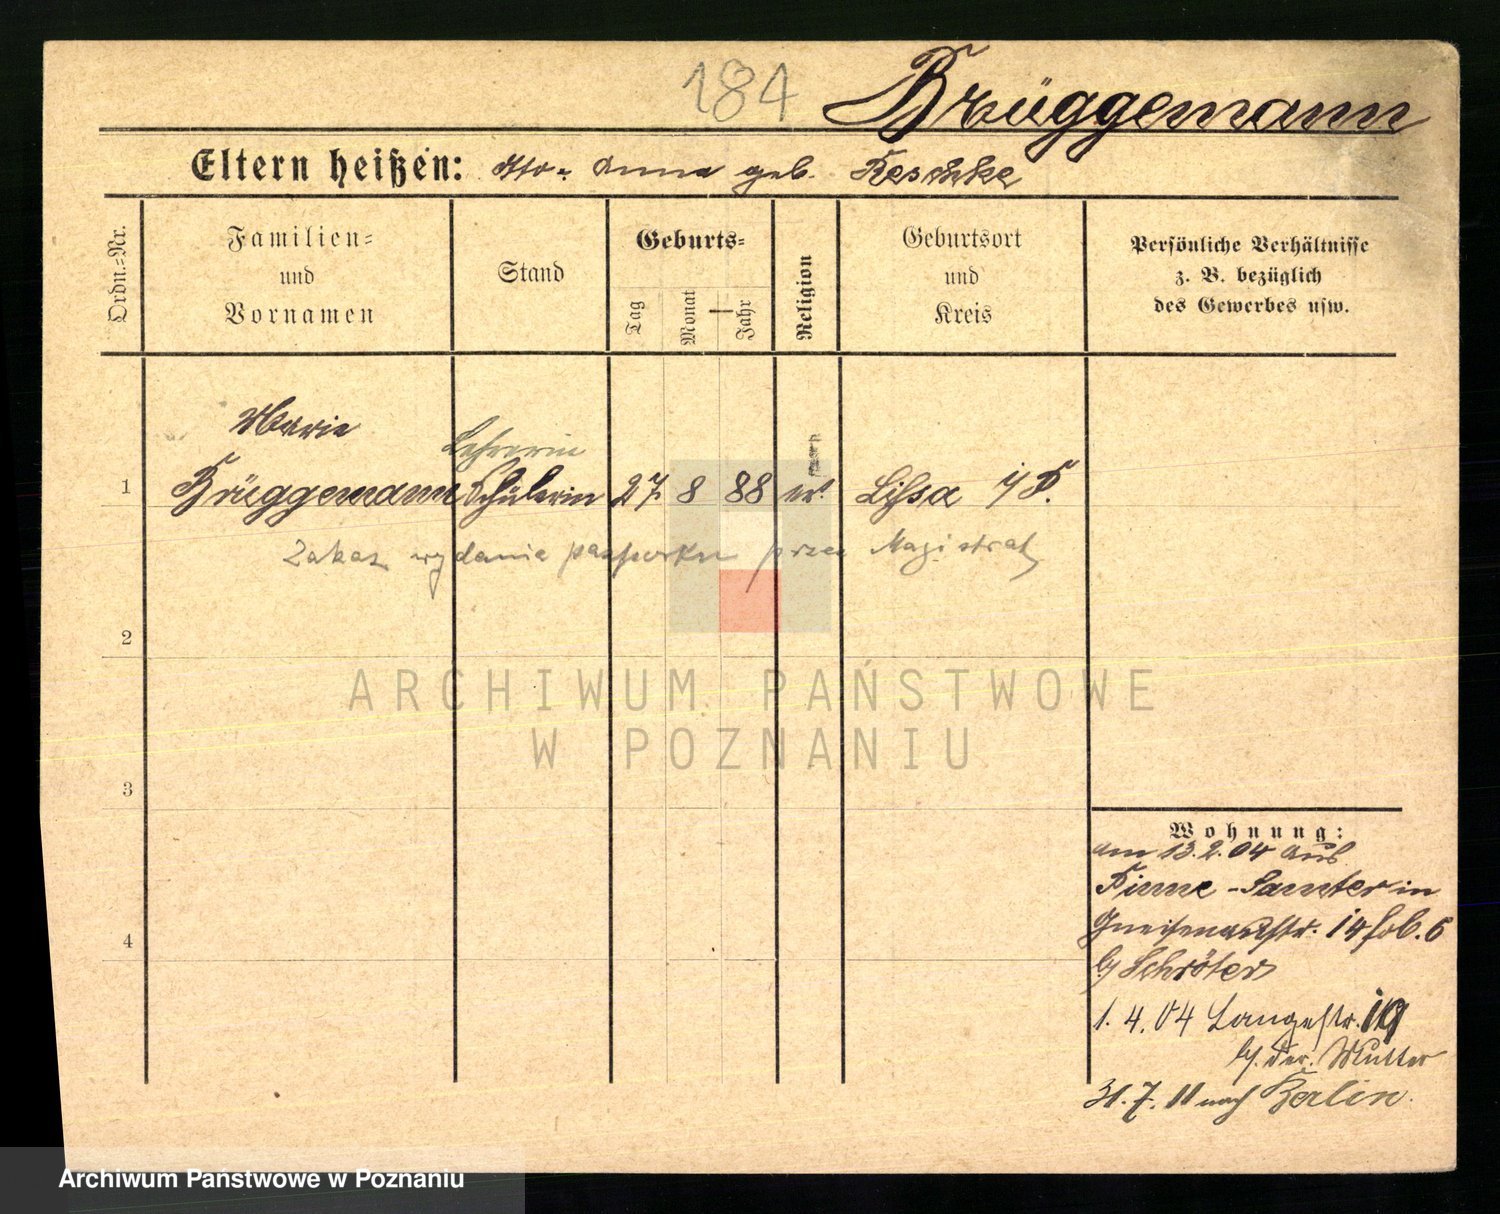 184 Brüggemann
Eltern heißen: Otto - Anna geb. Reschke
Ordn.=Nr.
Familien=
und
Vornamen
Stand
Geburts=
Tag
Monat
Jahr
Religion
Geburtsort
und
Kreis
Persönliche Verhältnisse
z. B. bezüglich
des Gewerbes usw.
Marie
Lehrerin
1 Brüggemann Schülerin 27. 8 88 ev. Lissa i/P.
Zakaz wydania paszportu przez Magistrat
2
3
4
Wohnung:
am 13.2.04 aus
Pinne - Samter in
Gneisenaustr. 14 Hob. 6
b/ Schröter
1. 4. 04 Langestr. 10
b/. der Mutter
31. 7. 11 nach Berlin.
ARCHIWUM PAŃSTWOWE
W POZNANIU
Archiwum Państwowe w Poznaniu